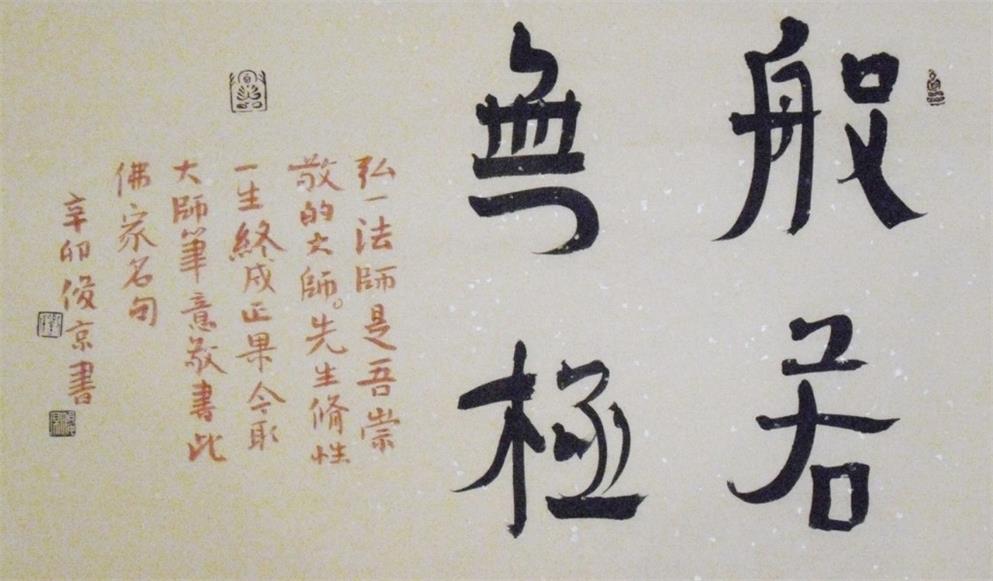 般若
無極
弘一法師是吾崇
敬的大師。先生脩性
一生終成正果今取
大師筆意敬書此
佛家名句
辛卯俊京書